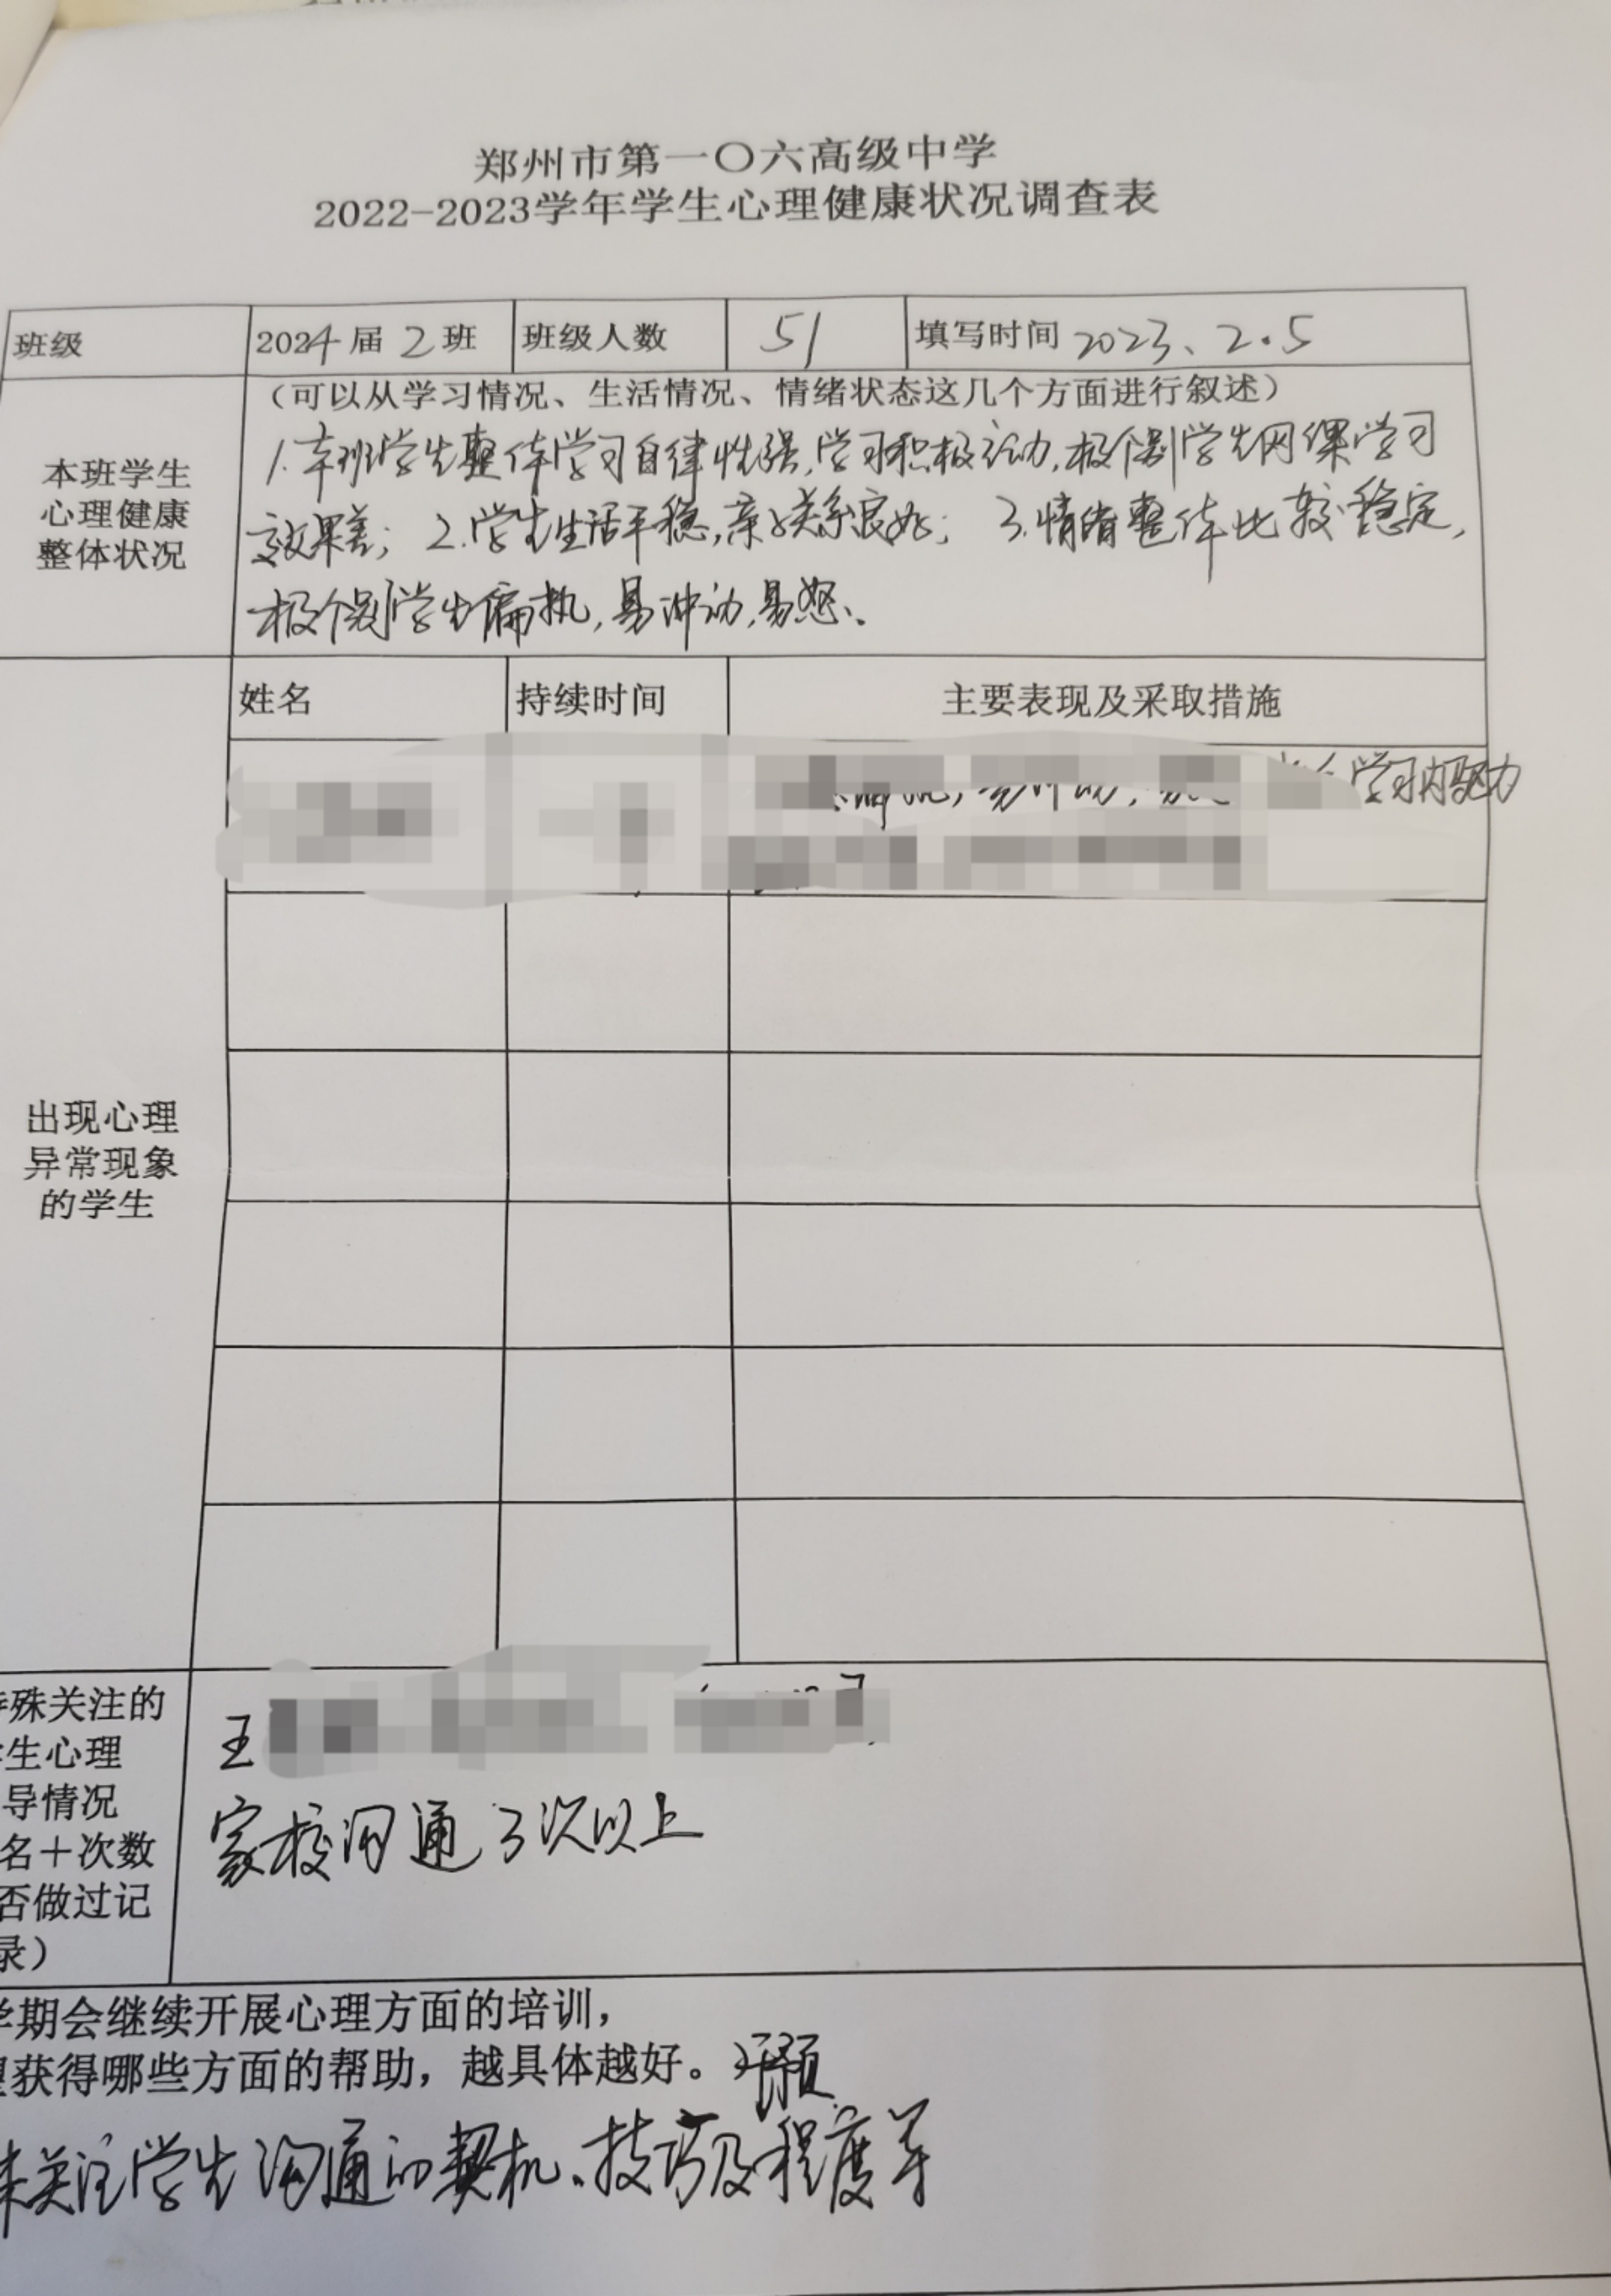 郑州市第一〇六高级中学
2022-2023学年学生心理健康状况调查表
班级 2024届2班 班级人数 51 填写时间 2023、2.5
本班学生
心理健康
整体状况
(可以从学习情况、生活情况、情绪状态这几个方面进行叙述)
1.本班学生整体学习自律性强,学习积极主动,极个别学生网课学习
效果差; 2.学生生活平稳,亲子关系良好; 3.情绪整体比较稳定,
极个别学生偏执,易冲动,易怒、
姓名 持续时间 主要表现及采取措施
学习内驱力
出现心理
异常现象
的学生
殊关注的
生心理
导情况
名+次数
否做过记
录)
王
家校沟通3次以上
学期会继续开展心理方面的培训,
获得哪些方面的帮助,越具体越好。
关注学生沟通的契机、技巧及程度等